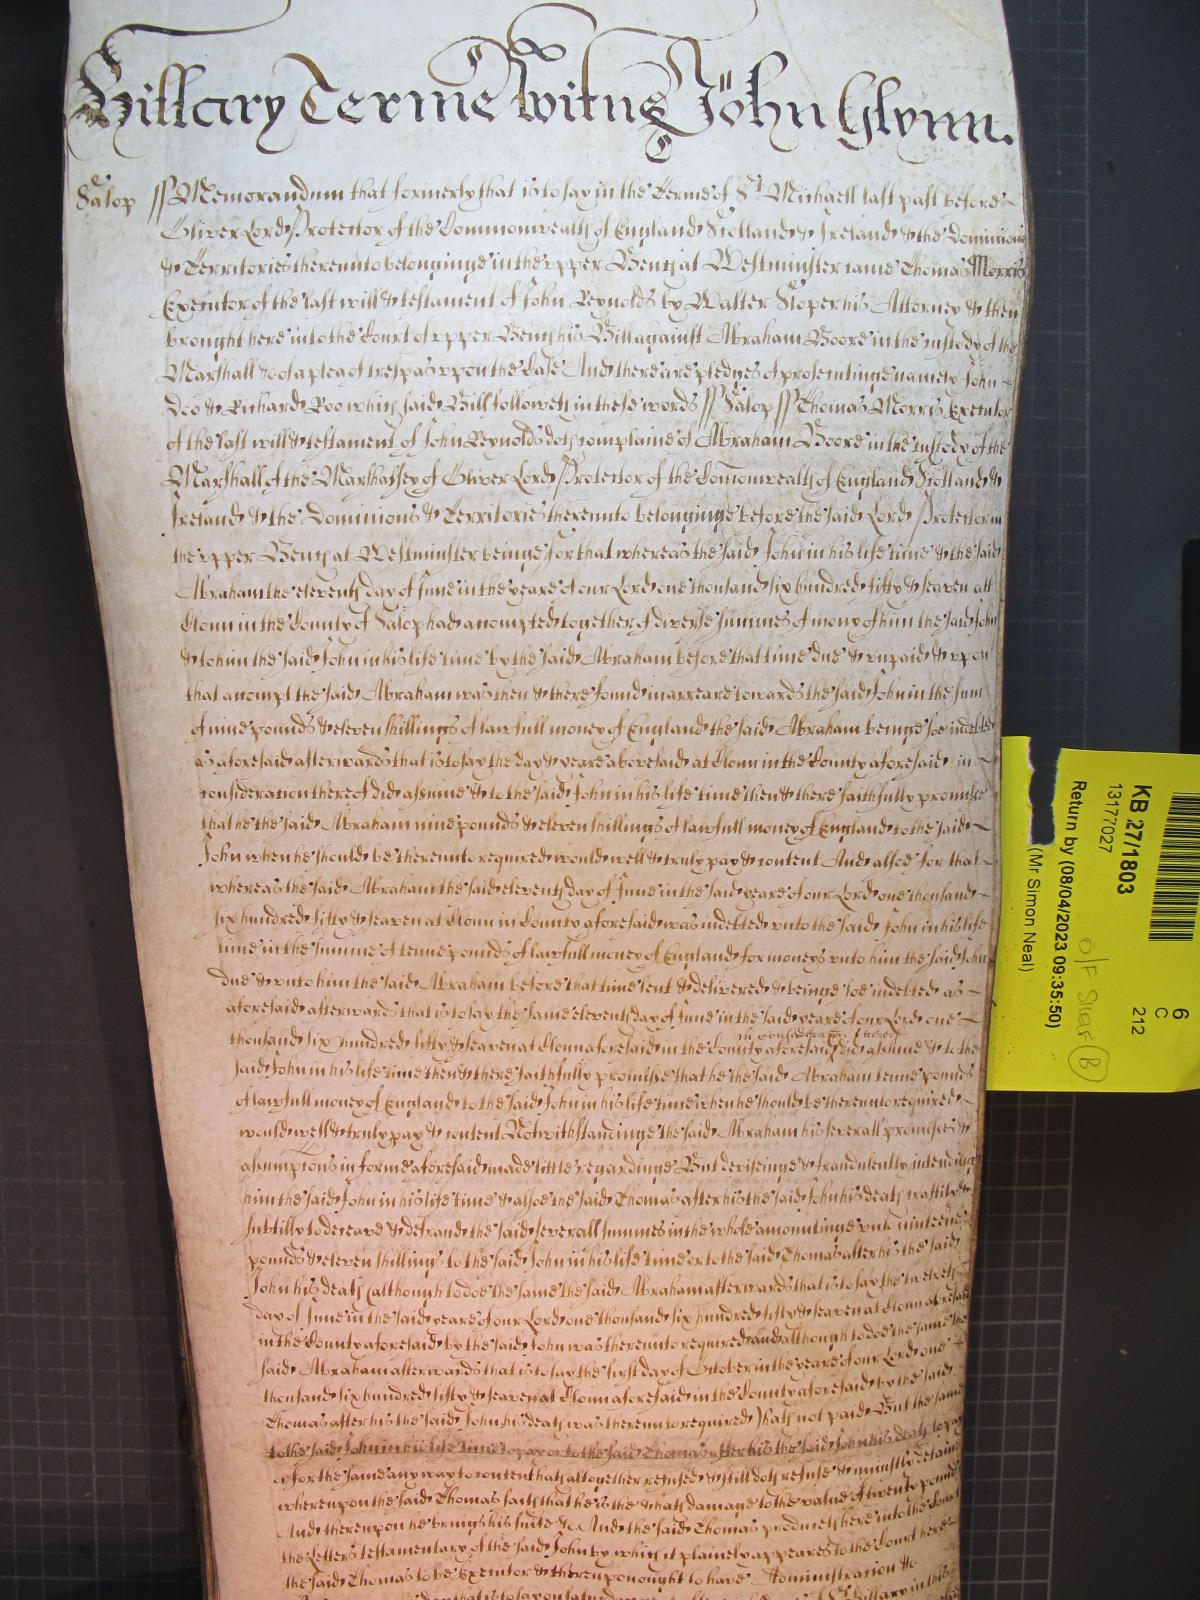 Hillary Terme Witnes John Glynn.
Salop ss Memorandum that formerly that is to say in the Terme of St Michaell last past before
Oliver Lord Protector of the Commonwealth of England Scotland & Ireland & the Dominions
& Territories thereunto belonginge in the upper Bench at Westminster came Thomas Morris
Executor of the last will & testament of John Reynolds by Walter Sloper his Attorney & then
brought here into the Court of upper Bench his Bill against Abraham Boore in the custody of the
Marshall &c of a plea of trespas upon the Case And there are pledges of prosecutinge namely John
Doo & Richard Roo which said Bill followeth in these words ss Salop ss Thomas Morris Executor
of the last will & testament of John Reynolds doth complaine of Abraham Boore in the custody of the
Marshall of the Marshalsey of Oliver Lord Protector of the Comonwealth of England Scotland &
Ireland & the Dominions & Territories thereunto belonginge before the said Lord Protector in
the upper Bench at Westminster beinge for that whereas the said John in his life time & the said
Abraham the eleventh day of June in the yeare of our Lord one thousand six hundred fifty & seaven att
Clonn in the County of Salop had accompted together of diverse summes of mony of him the said John
& to him the said John in his life time by the said Abraham before that time due & unpaid & upon
that accompt the said Abraham was then & there found in arreare towards the said John in the sum
of nine pounds & eleven shillings of lawfull money of England the said Abraham beinge soe indebted
as aforesaid afterwards that is to say the day & yeare abovesaid at Clonn in the County aforesaid in
consideration thereof did assume & to the said John in his life time then & there faithfully promise
that he the said Abraham nine pounds & eleven shillings of lawfull money of England to the said
John when he should be thereunto required would well & truly pay & content And alsoe for that
whereas the said Abraham the said eleventh day of June in the said yeare of our Lord one thousand
six hundred fifty & seaven at Clonn in County aforesaid was indebted unto the said John in his life
time in the summe of tenne pounds of lawfull money of England for moneys unto him the said John
due & unto him the said Abraham before that time lent & delivered & beinge soe indebted as
aforesaid afterwards that is to say the same eleventh day of June in the said yeare of our Lord one
thousand six hundred fifty & seaven at Clonn aforesaid in the County aforesaid in consideration thereof did assume & to the
said John in his life time then & there faithfully promise that he the said Abraham tenne pounds
of lawfull money of England to the said John in his life time when he should be thereunto required
would well & truly pay & content Notwithstandinge the said Abraham his severall promises &
assumpcions in forme aforesaid made little regardinge But deviseinge & fraudulently intendinge
him the said John in his life time & alsoe the said Thomas after his the said John his death craftily &
subtilly to deceave & defraud the said severall summes in the whole amountinge unto ninteene
pounds & eleven shillings to the said John in his life time or to the said Thomas after his the said
John his death (although to doe the same the said Abraham afterwards that is to say the twelveth
day of June in the said yeare of our Lord one thousand six hundred fifty & seaven at Clonn aforesaid
in the County aforesaid by the said John was thereunto required and although to doe the same the
said Abraham afterwards that is to say the first day of October in the yeare of our Lord one
thousand six hundred fifty & seaven at Clonn aforesaid in the County aforesaid by the said
Thomas after his the said John his death was thereunto required) hath not paid But the same
to the said John in his life time to pay or to the said Thomas after his the said John his death to pay
or for the same any way to content hath altogether refused & still doth refuse & unjustly detaine
whereupon the said Thomas saith that he is the & hath damage to the value of twenty pounds
And thereupon he brings his suite &c And the said Thomas produceth here into the Court
the Letters testamentary of the said John by which it plainely appeares to the Court here
the said Thomas to be Executor & thereupon ought to have Administration &c
KB 27/1803
13177027
Return by (08/04/2023 09:35:50)
(Mr Simon Neal)
6
C
212
O/F Shar B